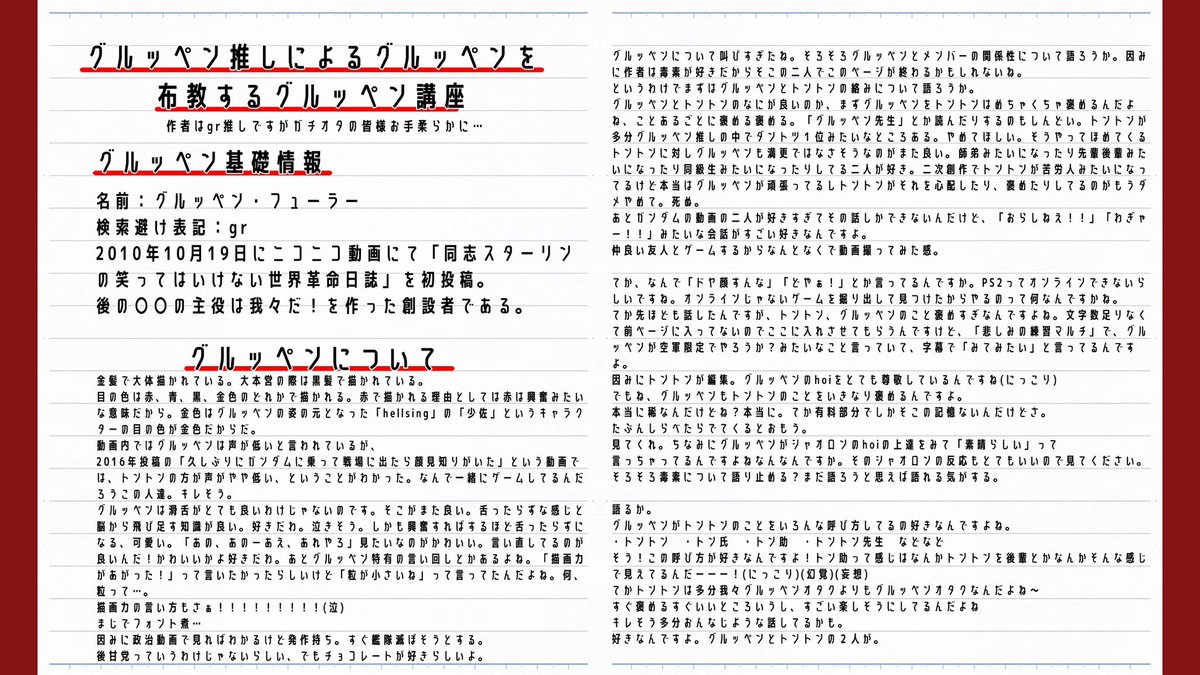 グルッペン推しによるグルッペンを
布教するグルッペン講座
作者はgr推しですがガチオタの皆様お手柔らかに…
グルッペン基礎情報
名前：グルッペン・フューラー
検索避け表記：gr
2010年10月19日にニコニコ動画にて「同志スターリン
の笑ってはいけない世界革命日誌」を初投稿。
後の〇〇の主役は我々だ！を作った創設者である。
グルッペンについて
金髪で大体描かれている。大本営の際は黒髪で描かれている。
目の色は赤、青、黒、金色のどれかで描かれる。赤で描かれる理由としては赤は興奮みたい
な意味だから。金色はグルッペンの姿の元となった「hellsing」の「少佐」というキャラク
ターの目の色が金色だからだ。
動画内ではグルッペンは声が低いと言われているが、
2016年投稿の「久しぶりにガンダムに乗って戦場に出たら顔見知りがいた」という動画で
は、トントンの方が声がやや低い、ということがわかった。なんで一緒にゲームしてるんだ
ろうこの人達。キレそう。
グルッペンは滑舌がとても良いわけじゃないのです。そこがまた良い。舌ったらずな感じと
脳から飛び足す知識が良い。好きだわ。泣きそう。しかも興奮すればするほど舌ったらずに
なる、可愛い。「あの、あのーあえ、あれやろ」見たいなのがかわいい。言い直してるのが
良いんだ！かわいいかよ好きだわ。あとグルッペン特有の言い回しとかあるよね。「描画力
があがった！」って言いたかったらしいけど「粒が小さいね」って言ってたんだよね。何、
粒って…。
描画力の言い方もさぁ！！！！！！！！！(泣)
まじでフォント煮…
因みに政治動画で見ればわかるけど発作持ち。すぐ艦隊滅ぼそうとする。
後甘党っていうわけじゃないらしい、でもチョコレートが好きらしいよ。
グルッペンについて叫びすぎたね。そろそろグルッペンとメンバーの関係性について語ろうか。因み
に作者は毒素が好きだからそこの二人でこのページが終わるかもしれないね。
というわけでまずはグルッペンとトントンの絡みについて語ろうか。
グルッペンとトントンのなにが良いのか、まずグルッペンをトントンはめちゃくちゃ褒めるんだよ
ね、ことあるごとに褒める褒める。「グルッペン先生」とか読んだりするのもしんどい。トントンが
多分グルッペン推しの中でダントツ１位みたいなところある。やめてほしい。そうやってほめてくる
トントンに対しグルッペンも満更ではなさそうなのがまた良い。師弟みたいになったり先輩後輩みた
いになったり同級生みたいになったりしてる二人が好き。二次創作でトントンが苦労人みたいになっ
てるけど本当はグルッペンが頑張ってるしトントンがそれを心配したり、褒めたりしてるのがもうダ
メやめて。死ぬ。
あとガンダムの動画の二人が好きすぎてその話しかできないんだけど、「おらしねえ！！」「わぎゃ
ー！！」みたいな会話がすごい好きなんですよ。
仲良い友人とゲームするからなんとなくで動画撮ってみた感。
てか、なんで「ドヤ顔すんな」「どやぁ！」とか言ってるんですか。PS2ってオンラインできないら
しいですね。オンラインじゃないゲームを掘り出して見つけたからやるのって何なんですかね。
てか先ほども話したんですが、トントン、グルッペンのこと褒めすぎなんですよね。文字数足りなく
て前ページに入ってないのでここに入れさせてもらうんですけど、「悲しみの練習マルチ」で、グル
ッペンが空軍限定でやろうか？みたいなこと言っていて、字幕で「みてみたい」と言ってるんです
よ。
因みにトントンが編集。グルッペンのhoiをとても尊敬しているんですね(にっこり)
でもね、グルッペンもトントンのことをいきなり褒めるんですよ。
本当に稀なんだけどね？本当に。てか有料部分でしかそこの記憶ないんだけどさ。
たぶんしらべたらでてくるとおもう。
見てくれ。ちなみにグルッペンがシャオロンのhoiの上達をみて「素晴らしい」って
言っちゃってるんですよねなんなんですか。そのシャオロンの反応もとてもいいので見てください。
そろそろ毒素について語り止める？まだ語ろうと思えば語れる気がする。
語るか。
グルッペンがトントンのことをいろんな呼び方してるの好きなんですよね。
・トントン　・トン氏　・トン助　・トントン先生　などなど
そう！この呼び方が好きなんですよ！トン助って感じはなんかトントンを後輩とかなんかそんな感じ
で見えてるんだーーー！(にっこり)(幻覚)(妄想)
てかトントンは多分我々グルッペンオタクよりもグルッペンオタクなんだよね～
すぐ褒めるすぐいいところいうし、すごい楽しそうにしてるんだよね
キレそう多分おんなじような話してるかも。
好きなんですよ。グルッペンとトントンの２人が。